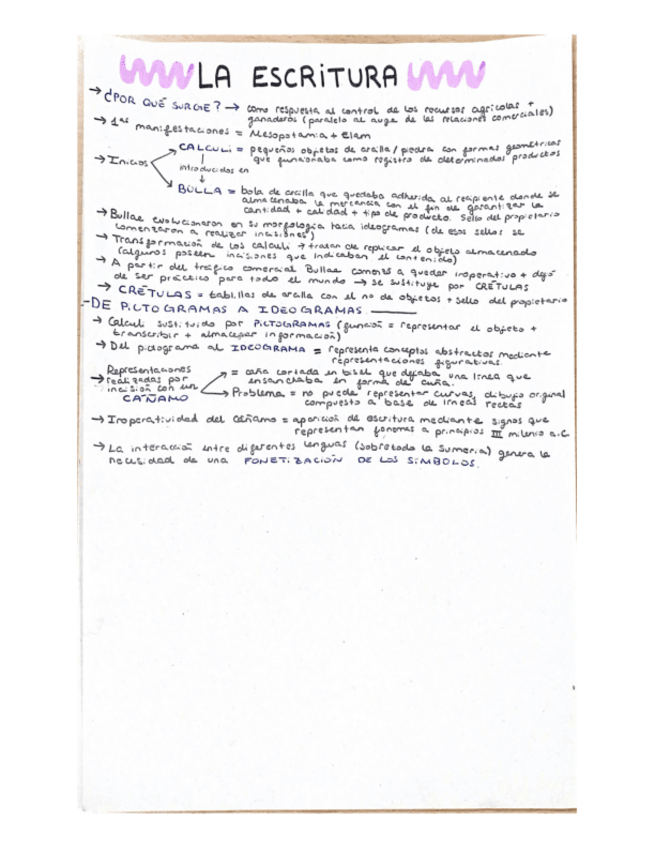 LA ESCRITURA
→ ¿POR QUÉ SURGE? → como respuesta al control de los recursos agrícolas +
ganaderos (paralelo al auge de las relaciones comerciales)
→ 1as manifestaciones = Mesopotamia + Elam
→ Inicios
CALCULI = pequeños objetos de arcilla/piedra con formas geométricas
que funcionaba como registro de determinados productos
introducidos en
BULLA = bola de arcilla que quedaba adherida al recipiente donde se
almacenaba la mercancía con el fin de garantizar la
cantidad + calidad + tipo de producto. Sello del propietario
→ Bullae evolucionaron en su morfología hacia ideogramas (de esos sellos se
comenzaron a realizar incisiones)
→ Transformación de los calculi → tratan de replicar el objeto almacenado
(algunos poseen incisiones que indicaban el contenido)
→ A partir del tráfico comercial Bullae comenzó a quedar inoperativo + dejó
de ser práctico para todo el mundo → se sustituye por CRÉTULAS
→ CRÉTULAS = tablillas de arcilla con el no de objetos + sello del propietario
-DE PICTOGRAMAS A IDEOGRAMAS
→ Calculi sustituido por PICTOGRAMAS (función = representar el objeto +
transcribir + almacenar información)
→ Del pictograma al IDEOGRAMA = representa conceptos abstractos mediante
representaciones figurativas.
Representaciones
→ realizadas por
incisión con un
CAÑAMO
= caña cortada en bisel que dejaba una línea que
ensanchaba en forma de cuña.
Problema = no puede representar curvas, dibujo original
compuesto a base de líneas rectas
→ Inoperatividad del Cáñamo = aparición de escritura mediante signos que
representan fonemas a principios III milenio a.C
→ La interacción entre diferentes lenguas (sobretodo la sumeria) genera la
necesidad de una FONETIZACIÓN DE LOS SÍMBOLOS.